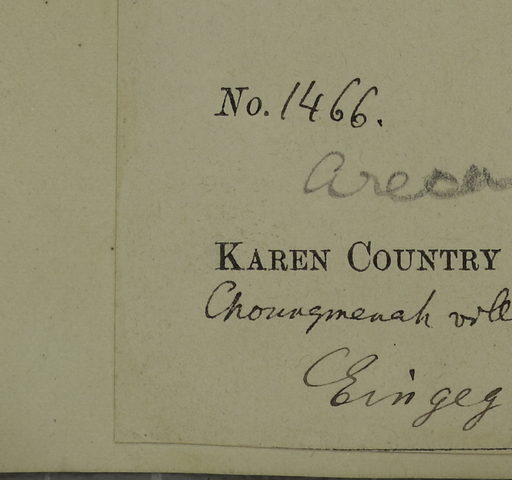 No. 1466.
Areca
KAREN COUNTRY
Choungmenah vill
Eingeg